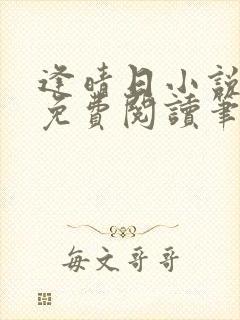 逢晴日小說
免費閱讀筆
每文哥哥